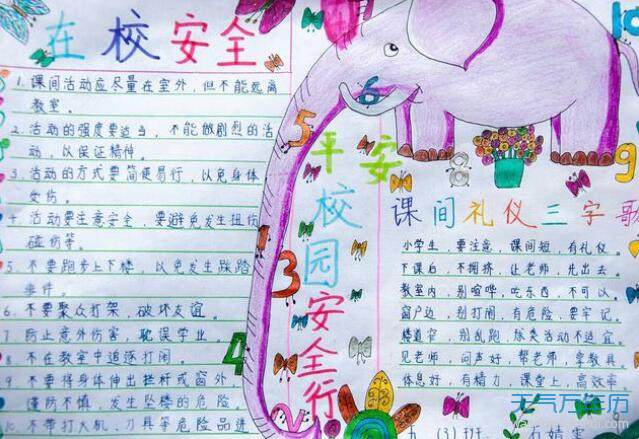 在校安全
1. 课间活动应尽量在室外，但不能远离
教室。
2. 活动的强度要适当，不能做剧烈的活
动，以保证精神。
3. 活动的方式要简便易行，以免身体
受伤。
4. 活动要注意安全，要避免发生扭伤
碰伤等。
5. 不要跑步上下楼，以免发生踩踏
事件。
6. 不要聚众打架，破坏友谊。
7. 防止意外伤害，耽误学业。
不在教室中追逐打闹。
9. 不要将身体伸出栏杆或窗外
谨防不慎，发生坠楼的危险
10. 不带打火机、刀具等危险品进
平安
校园
安全行
5
6
8
10
9
1
3
4
课间礼仪三字歌
小学生，要注意，课间短，有礼仪。
下课后，不拥挤，让老师，先出去。
教室内，别喧哗，吃东西，不可以。
窗户边，别打闹，有危险，要牢记。
楼道窄，别乱跑，球类活动不适宜。
见老师，问声好，帮老师，拿教具
休息好，有精力，课堂上，高效率
(3)班
天气万年历